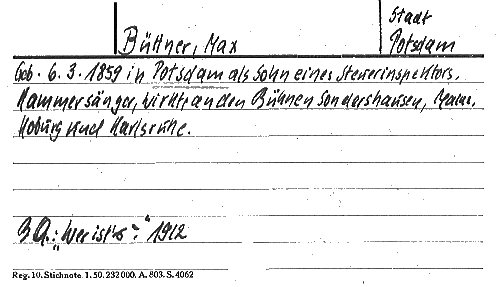 Stadt
Büttner, Max
Potsdam
Geb. 6.3.1859 in Potsdam als Sohn eines Steuerinspektors.
Kammersänger, wirkte an den Bühnen Sondershausen,
Koburg und Karlsruhe.
BA.: "Wer ist's-" 1912
Reg. 10. Stichnote 1. 50. 232000. A. 803. S. 4062